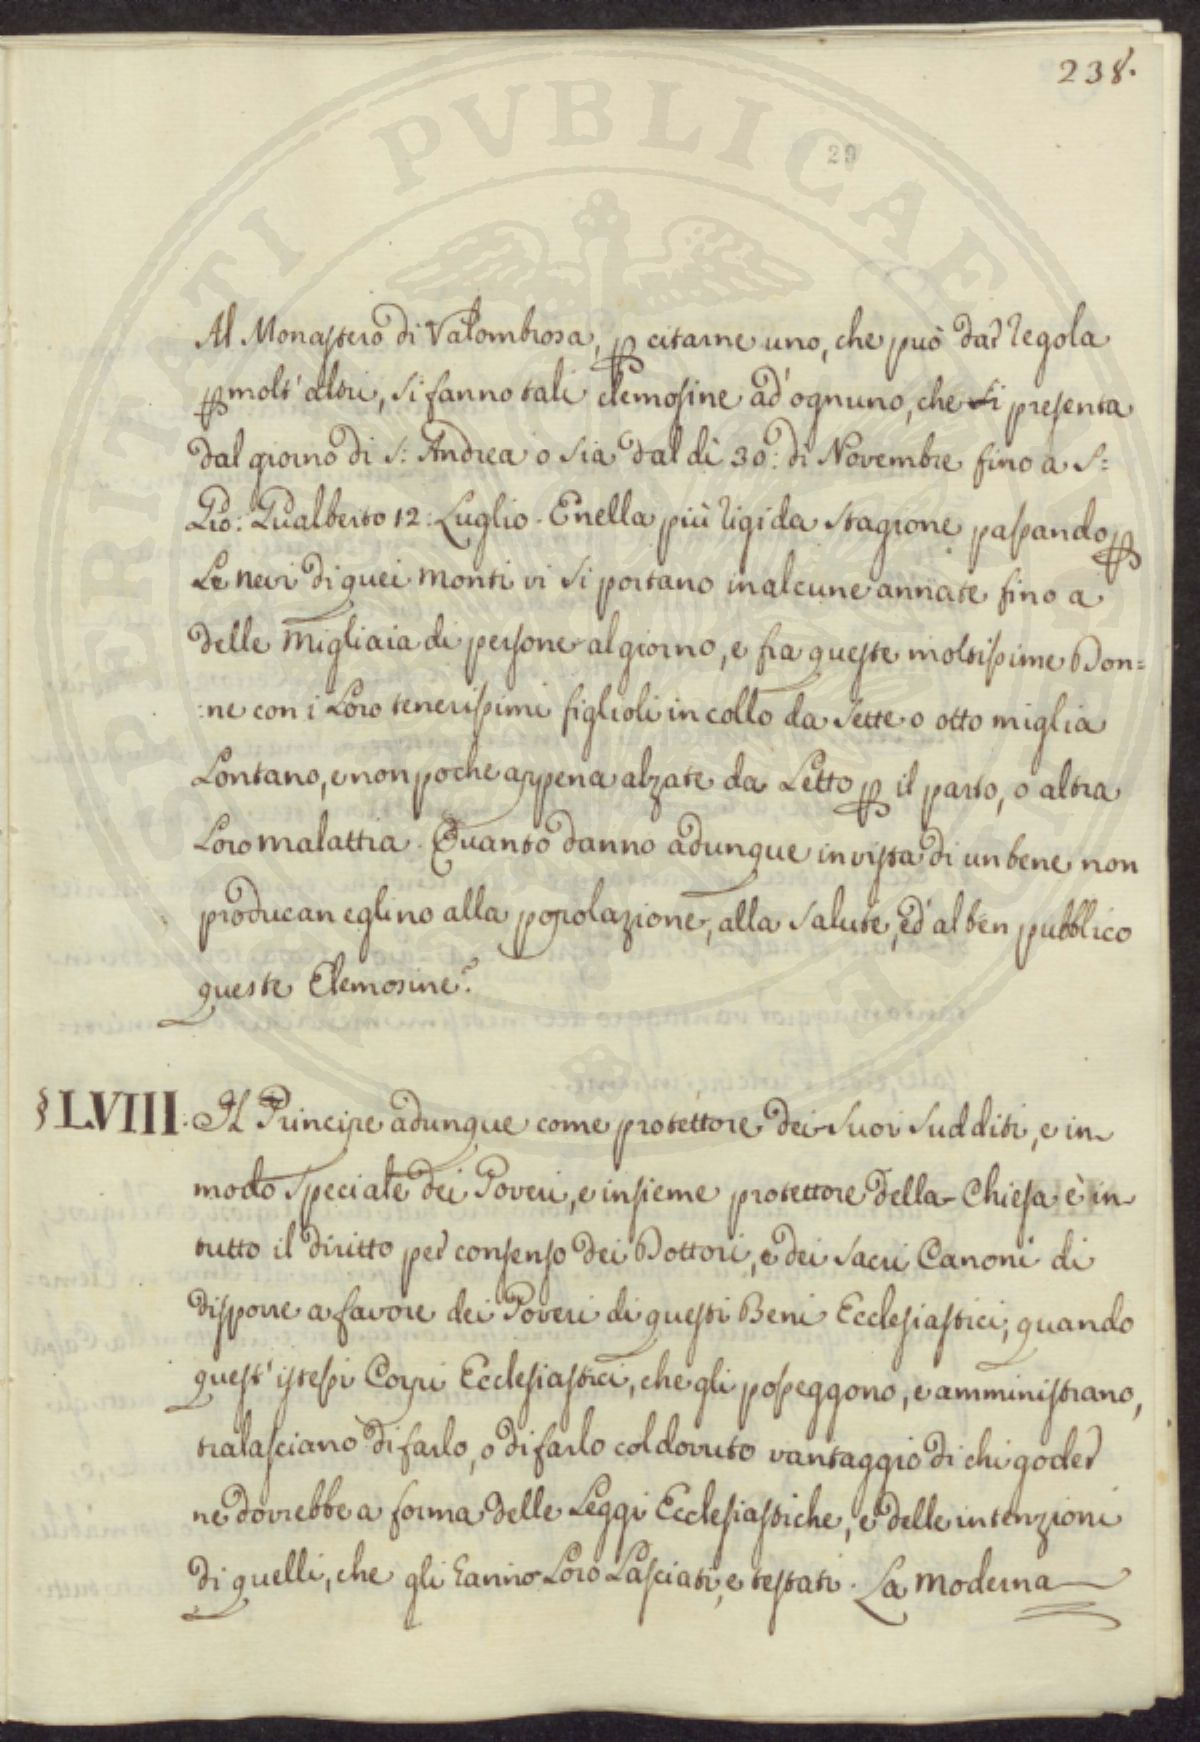 238.
29
PROSPERITATI PVBLICAE AVGENDAE
Al Monastero di Valombrosa, ꝑ citarne uno, che può dar regola
ꝑ molt' altri, si fanno tali elemosine ad' ognuno, che si presenta
dal giorno di S: Andrea o sia dal dì 30: di Novembre fino a S:
Gio: Gualberto 12: Luglio. E nella più rigida stagione passando ꝑ
Le nevi di quei monti vi si portano in alcune annate fino a
delle migliaia di persone al giorno, e fra queste moltissime Don=
:ne con i Loro tenerissimi figlioli in collo da sette o otto miglia
Lontano, e non poche appena alzate da Letto ꝑ il parto, o altra
Loro malattia. Quanto danno adunque in vista di un bene non
producan eglino alla popolazione, alla salute, ed' al ben pubblico
queste Elemosine?
§ LVIII: Il Principe adunque come protettore dei suoi sudditi, e in
modo speciale dei Poveri, e insieme protettore della Chiesa è in
tutto il diritto per consenso dei Dottori, e dei sacri Canoni di
disporre a favore dei Poveri di questi Beni Ecclesiastici, quando
quest' istessi Corpi Ecclesiastici, che gli posseggono, e amministrano,
tralasciano di farlo, o di farlo col dovuto vantaggio di chi goder
ne dovrebbe a forma delle Leggi Ecclesiastiche, e delle intenzioni
di quelli, che gli hanno Loro Lasciati, e testati. La moderna